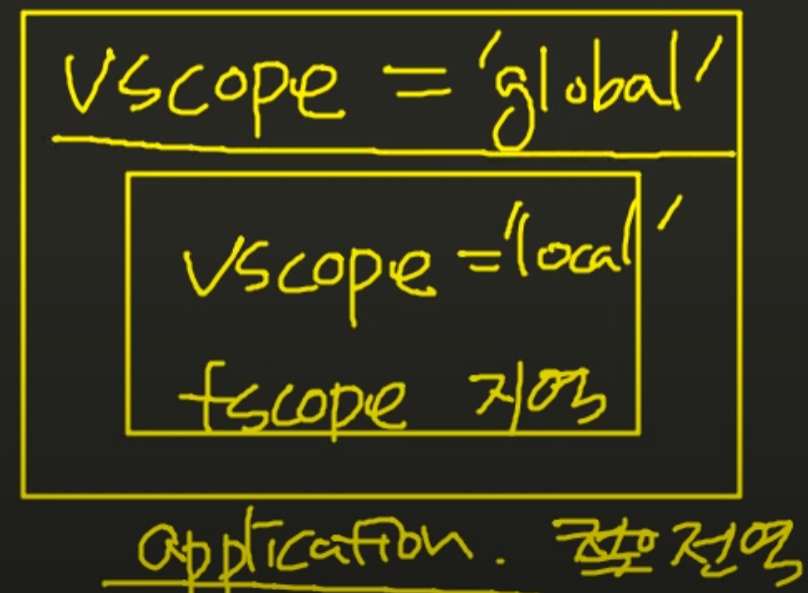 vscope = 'global'
vscope = 'local'
fscope 지역
application. 전역